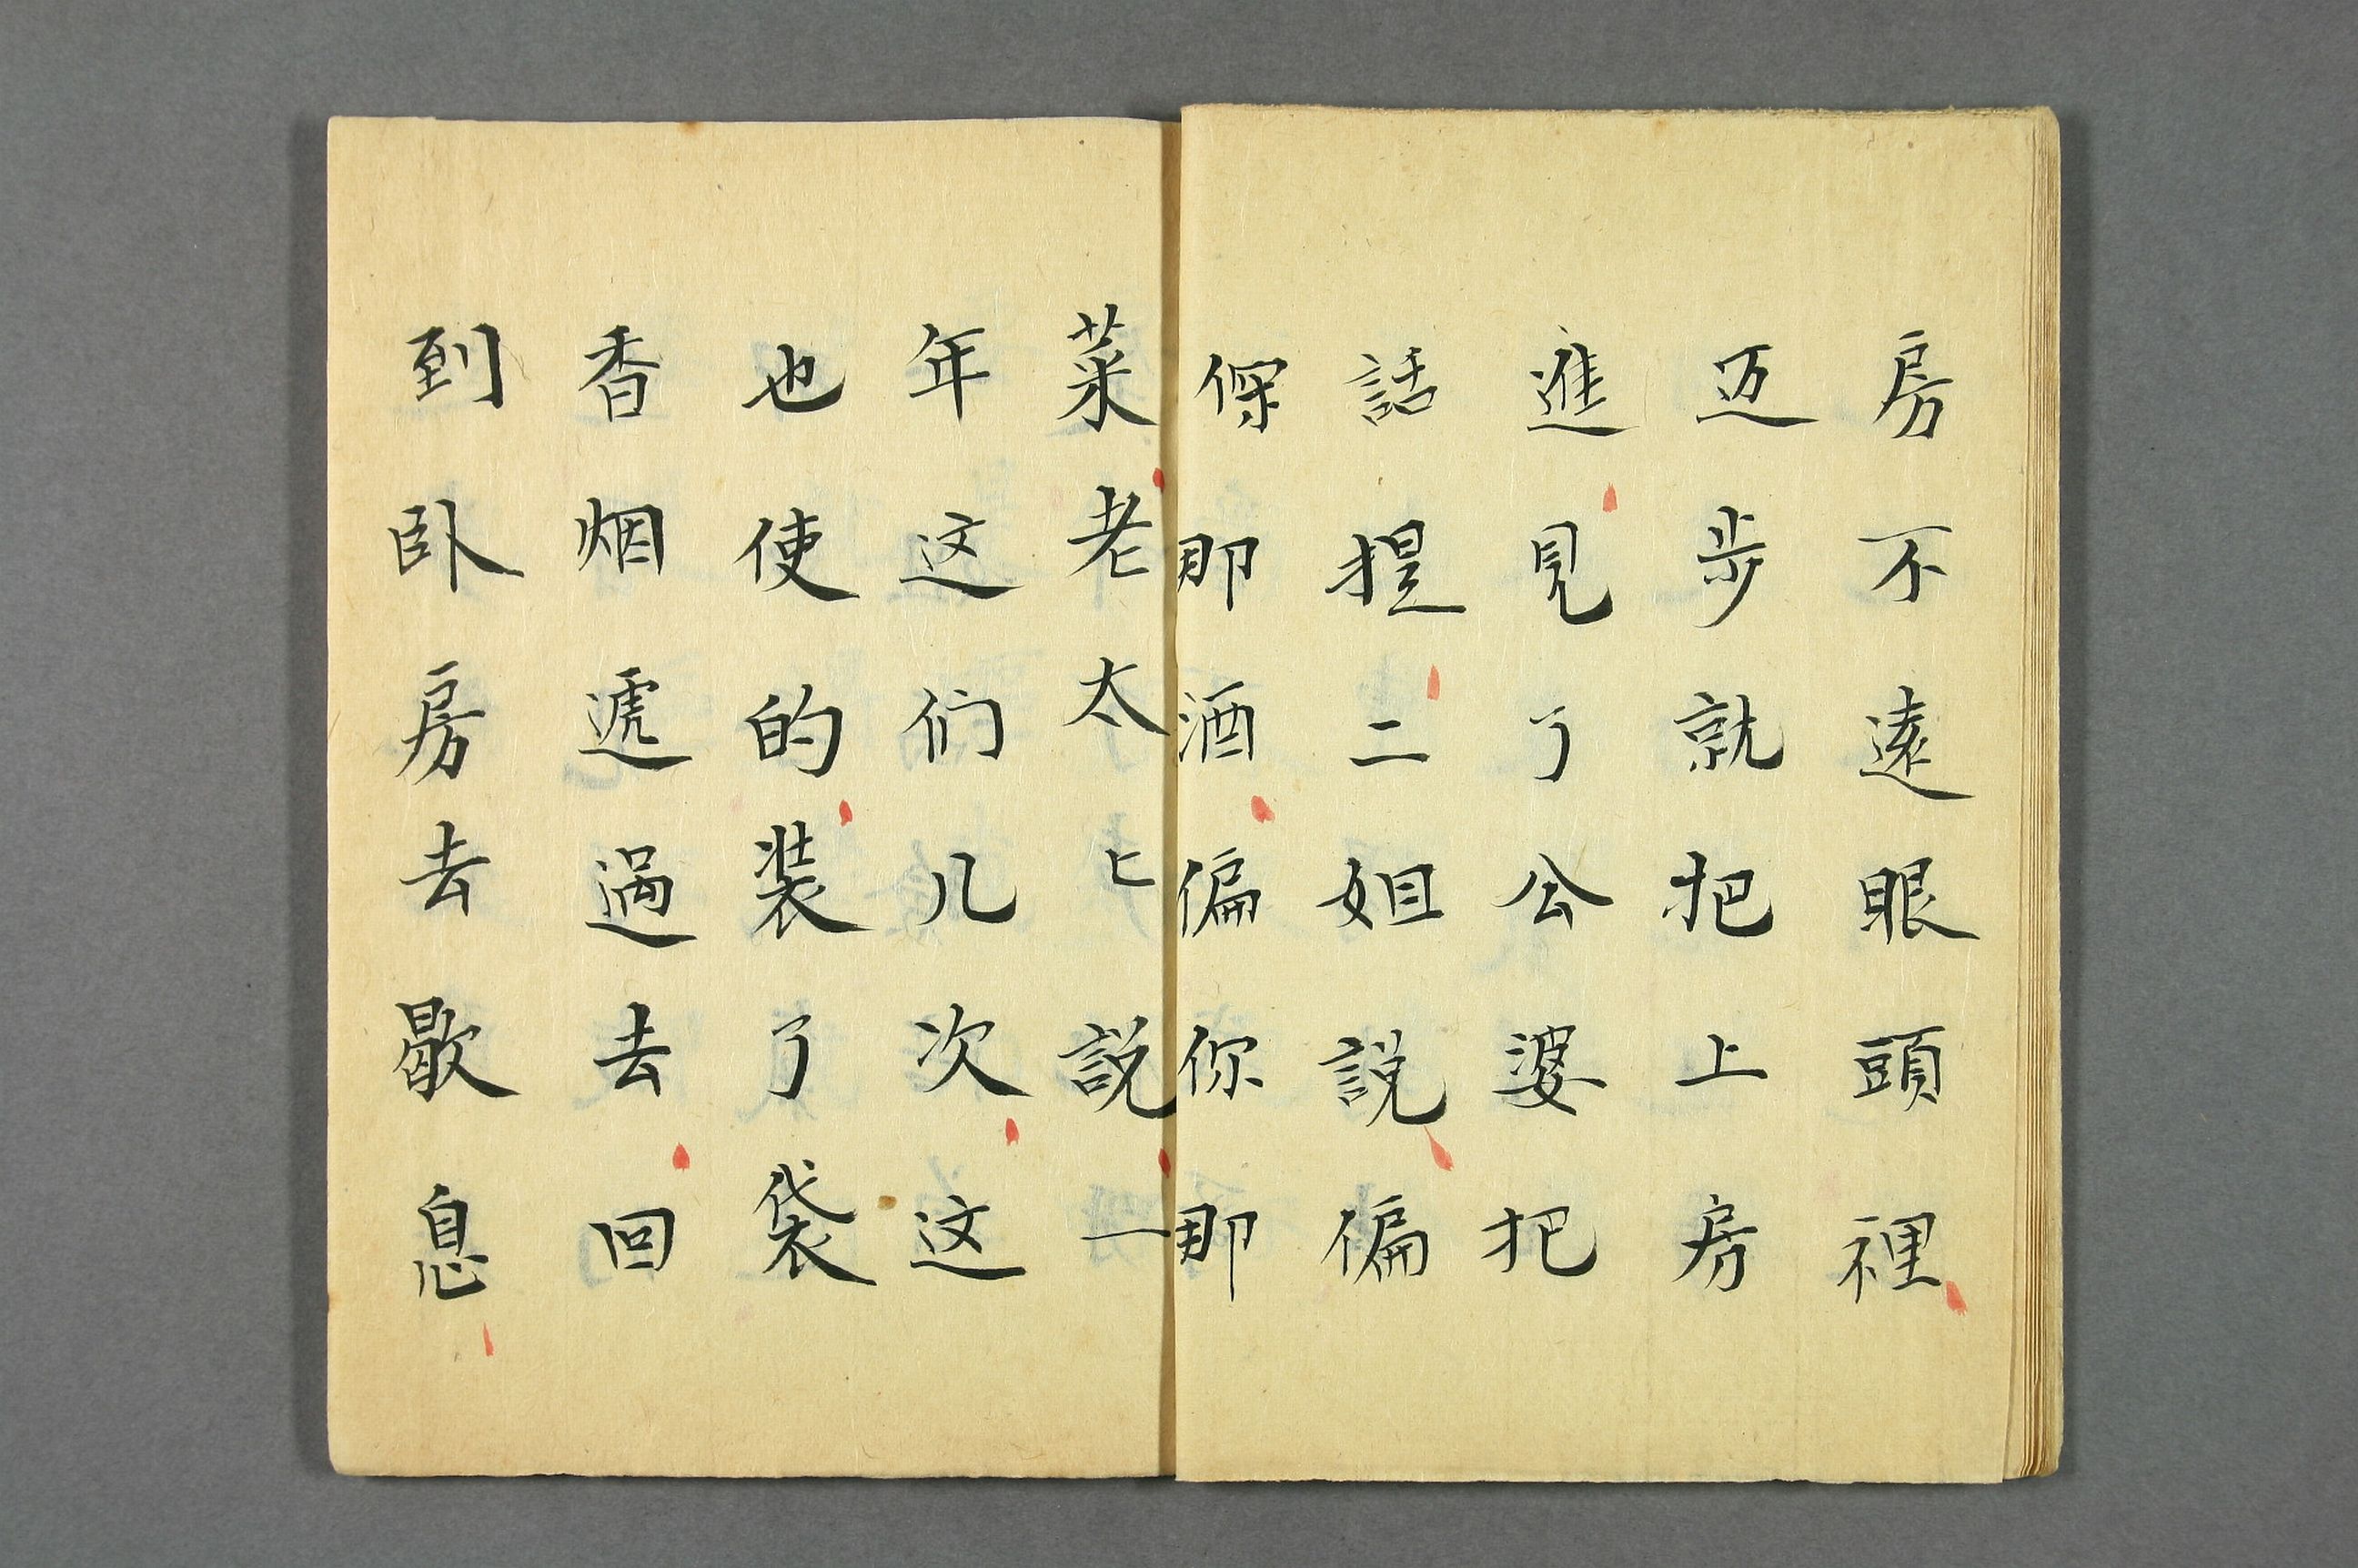 房不遠眼頭裡
迈步就把上房
進見了公婆把
話提二姐說偏
倸那酒偏你那
菜老太匕說一
年这们几次这
也使的装了袋
香烟遞過去回
到卧房去歇息